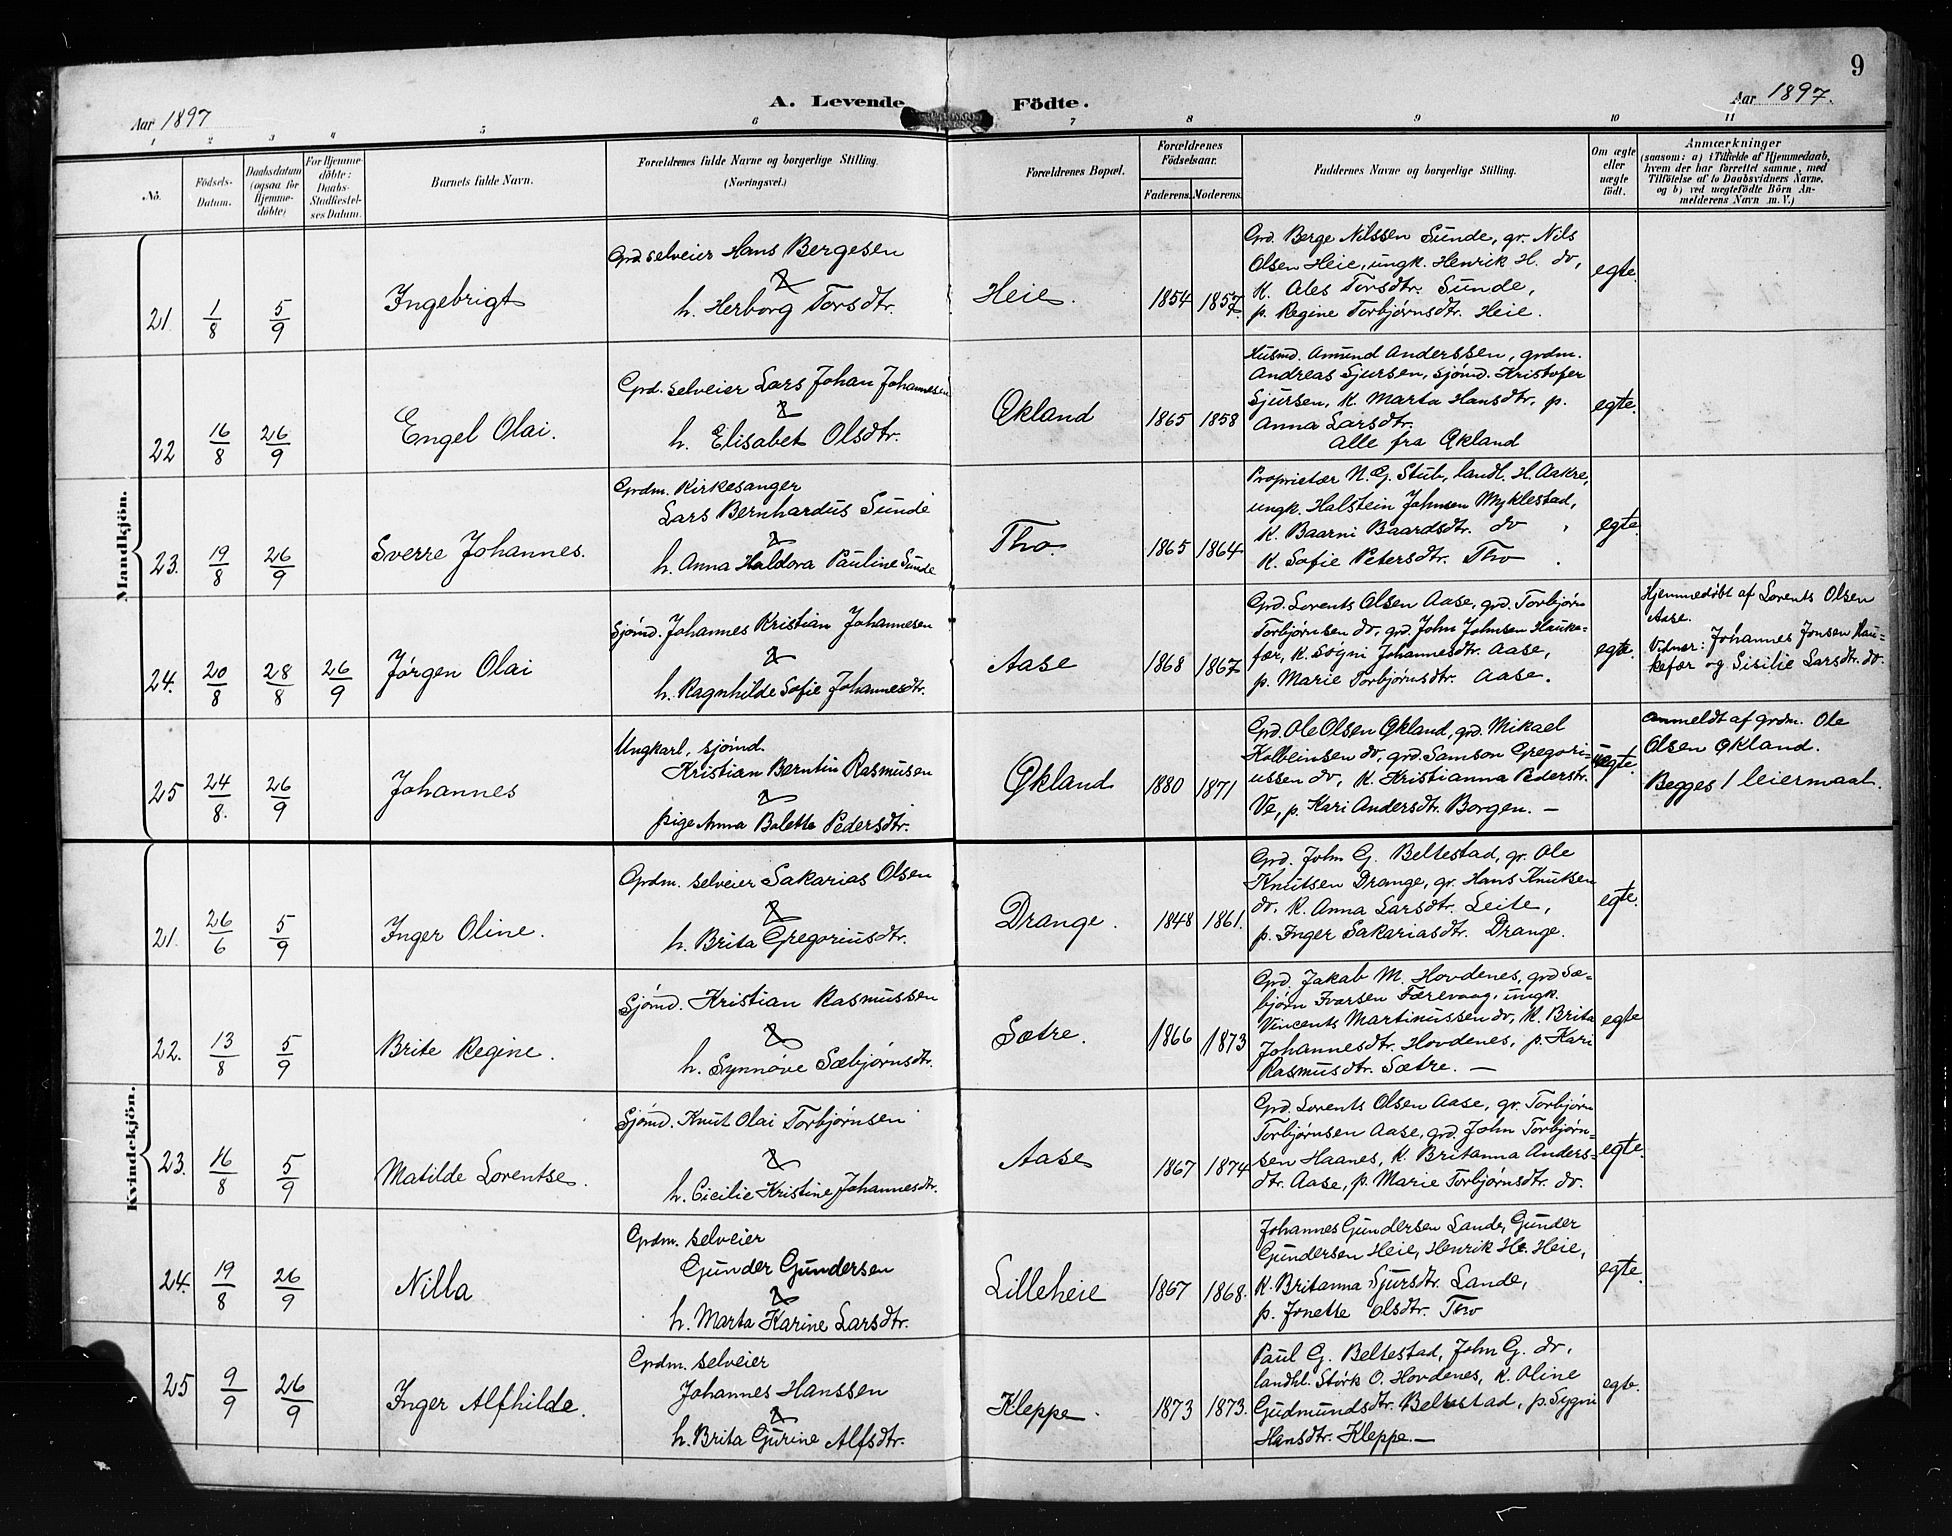 9
A. Levende Födte.
Aar 1897
Aar 1897.
1 2 3 4 5 6 7 8 9 10 11
No.
Födsels-
Datum.
Daabsdatum
(ogsaa for
Hjemme-
döbte)
For Hjemme-
döbte:
Daabs-
Stadfæstel-
ses Datum.
Barnets fulde Navn.
Forældrenes fulde Navne og borgerlige Stilling.
(Næringsvei.)
Forældrenes Bopæl.
Forældrenes
Födselsaar.
Faderens. Moderens.
Faddernes Navne og borgerlige Stilling.
Om ægte
eller
uægte
födt.
Anmærkninger
(saasom: a) i Tilfælde af Hjemmedaab,
hvem der har forrettet samme, med
Tilföielse af to Daabsvidners Navne,
og b) ved uægtefödte Börn An-
melderens Navn m. V.)
Mandkjön.
21. 1/8 5/9
Ingebrigt
Grd. selveier Hans Bergesen
&
h. Herborg Torsdtr.
Heie.
1854 1857.
Grd. Berge Nilssen Sunde, gr. Nils
Olsen Heie, ungk. Henrik H. do,
K. Ales Torsdtr. Sunde,
p. Regine Torbjørnsdtr. Heie.
egte.
22 16/8 26/9
Engel Olai.
Grd. selveier Lars Johan Johannesen
&
h. Elisabet Olsdtr.
Økland
1865 1858
Husmd. Amund Anderssen, grdm.
Andreas Sjursen, sjømd. Kristofer
Sjursen, K. Marta Hansdtr, p.
Anna Larsdtr.
Alle fra Økland
egte.
23. 19/8 26/9
Sverre Johannes.
Grdm. Kirkesanger
Lars Bernhardus Sunde
&
h. Anna Haldora Pauline Sunde
Tho.
1865 1864
Proprietær N. G. Stub, landl. H. Aakre,
ungk. Halstein Johnsen Myklestad,
K. Baarni Baardsdtr. do
K. Sofie Petersdtr. Tho.
egte.
24. 20/8 28/8 26/9
Jørgen Olai
Sjømd. Johannes Kristian Johannesen
&
h. Ragnhilde Sofie Johannesdtr.
Aase
1868 1867
Grd. Lorents Olsen Aase, grd. Torbjørn
Torbjørnsen do, grd. John Johnsen Hauke-
fær, K. Søgni Johannesdtr. Aase,
p. Marie Torbjørnsdtr. Aase.
egte.
Hjemmedøbt af Lorents Olsen
Aase.
Vidner: Johannes Jonsen Hau-
kefær og Sisilie Larsdtr. do.
25 24/8. 26/9
Johannes
Ungkarl, sjømd.
Kristian Berntin Rasmusen
&
pige Anna Bolette Pedersdtr.
Økland
1880 1871
Grd. Ole Olsen Økland, grd. Mikael
Kolbeinsen do, grd. Samson Gregori-
ussen do, K. Kristianna Pederstr.
Ve, p. Kari Andersdtr. Borgen. —
uegte.
Anmeldt af grdm. Ole
Olsen Økland.
Begges 1 leiermaal.
Kvindekjön.
21. 26/6 5/9
Inger Oline.
Grdm. selveier Sakarias Olsen
&
h. Brita Gregoriusdtr.
Drange.
1848 1861.
Grd. John G. Beltestad, gr. Ole
Knutsen Drange, gr. Hans Knutsen
do, K. Anna Larsdtr. Leite,
p. Inger Sakariasdtr. Drange.
egte.
22. 13/8 5/9
Brite Regine.
Sjömd. Kristian Rasmussen
&
h. Synnøve Sæbjørnsdtr.
Sætre.
1866 1873
Grd. Jakob M. Hovdenes, grd Sæ-
bjørn Ivarsen Færevaag, ungk.
Vincents Martinussen do, K. Brita
Johannesdtr. Hovdenes, p. Kari
Rasmusdtr. Sætre. —
egte
23. 16/8 5/9
Matilde Lorentse.
Sjömd. Knut Olai Torbjørnsen
&
h. Cicilie Kristine Johannesdtr.
Aase
1867 1874
Grd. Lorents Olsen Aase, gr. Torbjørn
Torbjørnsen Aase, grd. John Torbjørn-
sen Haanes, K. Britanna Anders-
dtr. Aase, p. Marie Torbjørnsdtr. do.
egte.
24. 19/8 26/9
Nilla
Grdm. selveier
Gunder Gundersen
&
h. Marta Karine Larsdtr.
Lilleheie
1867 1868.
Johannes Gundersen Lande, Gunder
Gundersen Heie, Henrik H. Heie,
K. Britanna Sjursdtr. Lande,
p. Jonette Olsdtr. Tho
egte.
25 9/9 26/9
Inger Alfhilde.
Grdm. selveier
Johannes Hanssen
&
h. Brita Gurine Alfsdtr.
Kleppe.
1873 1873.
Paul G. Beltestad, John G. do,
landhl. Størk O. Hovdenes, K. Oline
Gudmundsdtr. Beltestad, p. Sygni
Hansdtr. Kleppe. —
egte.